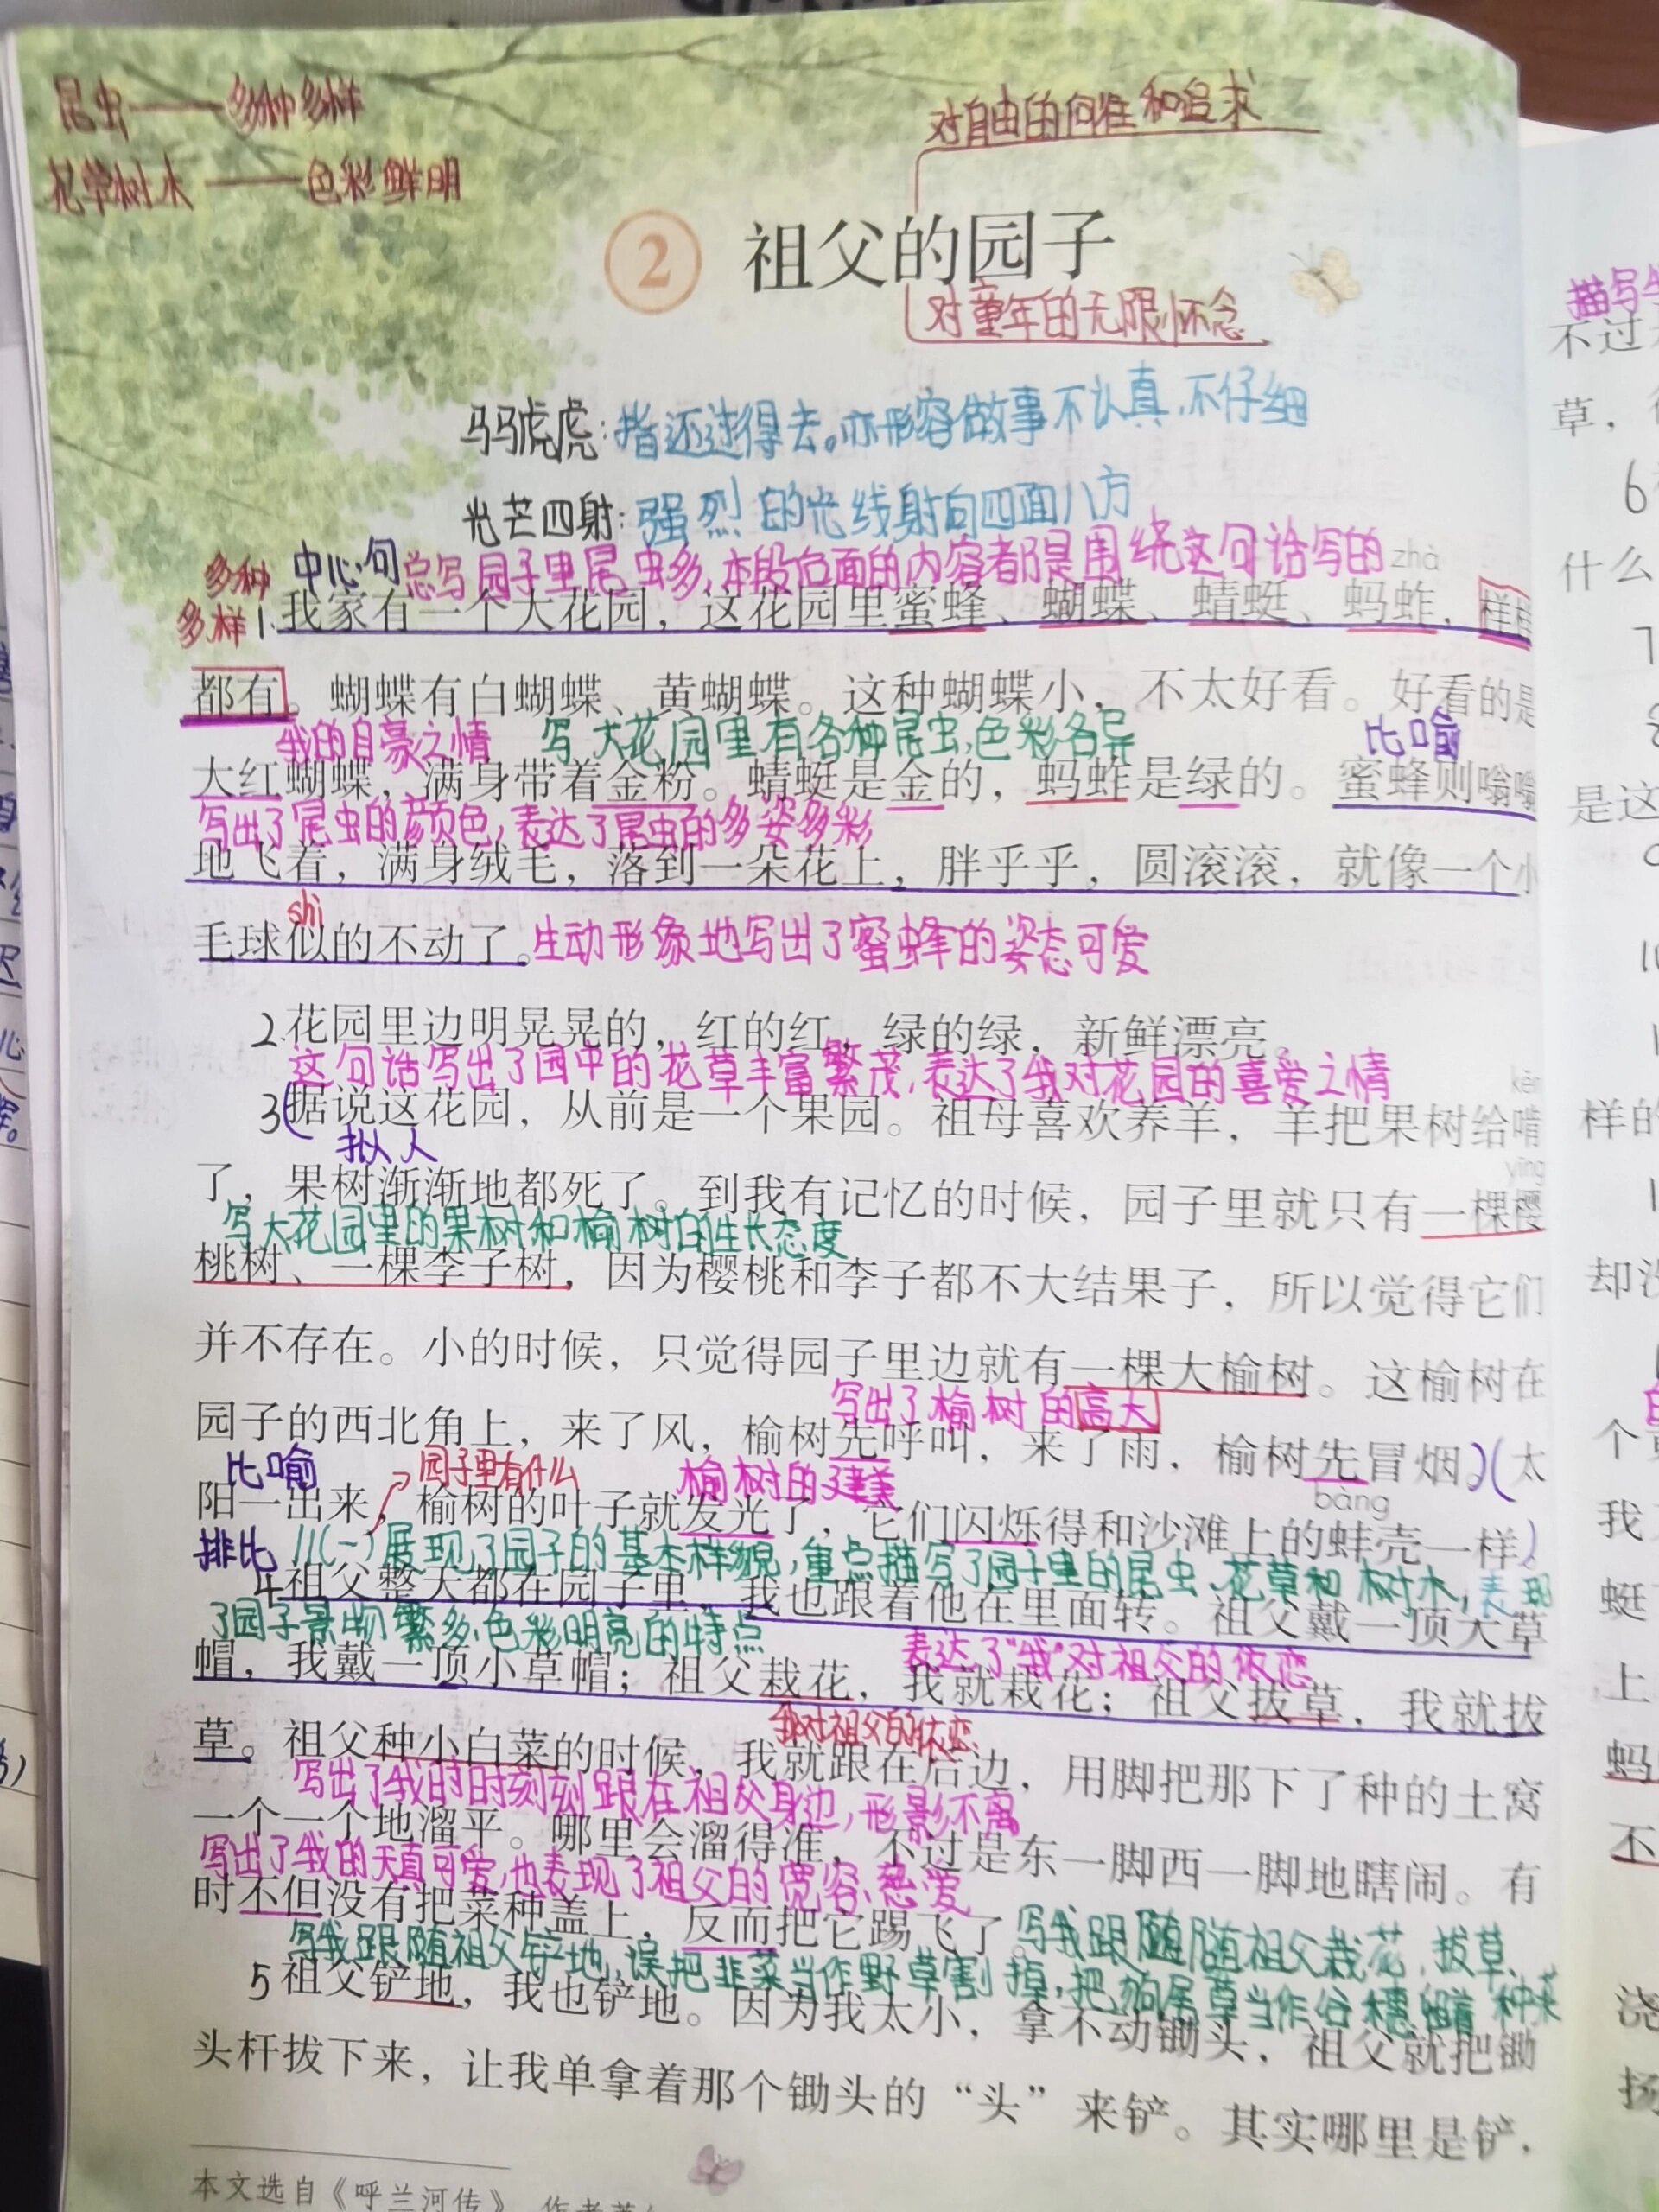 昆虫——多种多样
花草树木——色彩鲜明
对自由的向往和追求
2 祖父的园子
对童年的无限怀念
马马虎虎:指还过得去。亦形容做事不认真,不仔细
光芒四射:强烈的光线射向四面八方
多种
多样
中心句 总写园子里昆虫多,本段后面的内容都是围绕这句话写的
zhà
1.我家有一个大花园,这花园里蜜蜂、蝴蝶、蜻蜓、蚂蚱,样样
都有。蝴蝶有白蝴蝶、黄蝴蝶。这种蝴蝶小,不太好看。好看的是
我的自豪之情 写大花园里有各种昆虫,色彩各异 比喻
大红蝴蝶,满身带着金粉。蜻蜓是金的,蚂蚱是绿的。蜜蜂则嗡嗡
写出了昆虫的颜色,表达了昆虫的多姿多彩
地飞着,满身绒毛,落到一朵花上,胖乎乎,圆滚滚,就像一个小
shì
毛球似的不动了。生动形象地写出了蜜蜂的姿态可爱
2.花园里边明晃晃的,红的红,绿的绿,新鲜漂亮。
这句话写出了园中的花草丰富繁茂,表达了我对花园的喜爱之情
kěn
3(据说这花园,从前是一个果园。祖母喜欢养羊,羊把果树给啃
拟人
yīng
了,果树渐渐地都死了。到我有记忆的时候,园子里就只有一棵樱
写大花园里的果树和榆树的生长态度
桃树、一棵李子树,因为樱桃和李子都不大结果子,所以觉得它们
并不存在。小的时候,只觉得园子里边就有一棵大榆树。这榆树在
写出了榆树的高大
园子的西北角上,来了风,榆树先呼叫,来了雨,榆树先冒烟。)(太
比喻 园子里有什么 榆树的健美
bàng
阳一出来,榆树的叶子就发光了,它们闪烁得和沙滩上的蚌壳一样)
排比 //(一)展现了园子的基本样貌,重点描写了园子里的昆虫、花草和树木,表现
4祖父整天都在园子里,我也跟着他在里面转。祖父戴一顶大草
了园子景物繁多、色彩明亮的特点
表达了“我”对祖父的依恋
帽,我戴一顶小草帽;祖父栽花,我就栽花;祖父拔草,我就拔
我对祖父的依恋
草。祖父种小白菜的时候,我就跟在后边,用脚把那下了种的土窝
写出了我的时刻刻跟在祖父身边,形影不离
一个一个地溜平。哪里会溜得准,不过是东一脚西一脚地瞎闹。有
写出了我的天真可爱,也表现了祖父的宽容、慈爱
时不但没有把菜种盖上,反而把它踢飞了。写我跟随随祖父栽花、拔草、
写我跟随祖父铲地,误把韭菜当作野草割掉,把狗尾草当作谷穗留着 种菜
5祖父铲地,我也铲地。因为我太小,拿不动锄头,祖父就把锄
头杆拔下来,让我单拿着那个锄头的“头”来铲。其实哪里是铲,
本文选自《呼兰河传》
描写
不过
草,
6
什么
7
8
是这
10
样的
却没
个
我
蜓
上
蚂
不
浇
扬